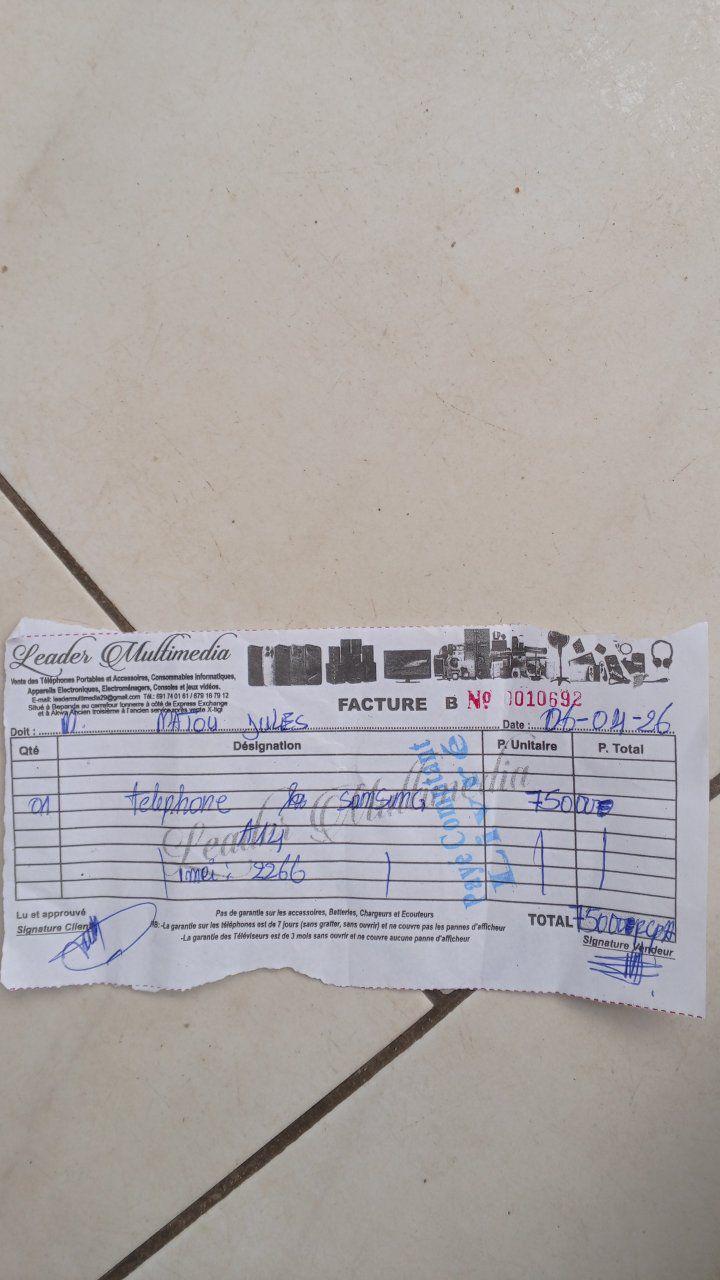 Leader Multimedia
Vente des Téléphones Portables et Accessoires, Consommables Informatiques,
Appareils Electroniques, Electroménagers, Consoles et jeux vidéos.
E-mail: leadermultimedia29@gmail.com Tél.: 691 74 01 61 / 679 16 79 12
Situé à Bepanda au carrefour tonnerre à côté de Express Exchange
et à Akwa Ancien troisième à l'ancien service après vente X-tigi
FACTURE B Nº 0010692
Doit : M. MATOU JULES Date : 06-04-26
Qté Désignation P. Unitaire P. Total
01 telephone SAMSUNG 75000
A14
imei : 2266
Leader Multimedia
Payé Comptant
Livré
Lu et approuvé
Signature Client
Pas de garantie sur les accessoires, Batteries, Chargeurs et Ecouteurs
NB: -La garantie sur les téléphones est de 7 jours (sans gratter, sans ouvrir) et ne couvre pas les pannes d'afficheur
-La garantie des Téléviseurs est de 3 mois sans ouvrir et ne couvre aucune panne d'afficheur
TOTAL 75000
Signature Vendeur